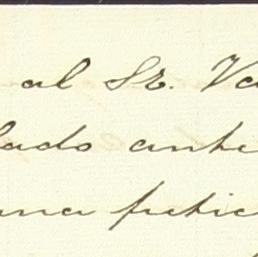 al Sr. Va
lado ante
una petic